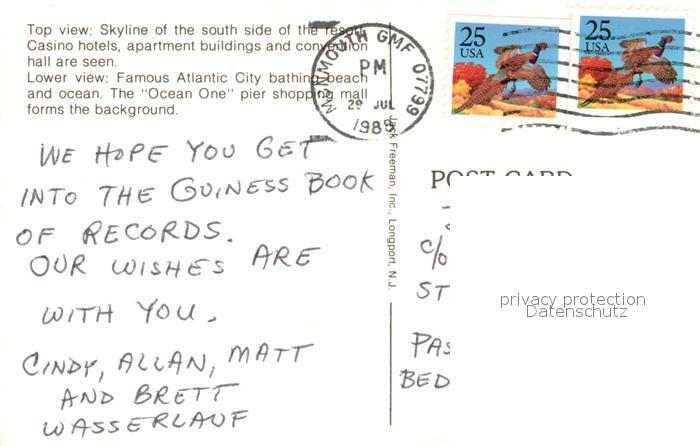 Top view: Skyline of the south side of the resort.
Casino hotels, apartment buildings and convention
hall are seen.
Lower view: Famous Atlantic City bathing beach
and ocean. The "Ocean One" pier shopping mall
forms the background.
MONMOUTH GMF 07799
PM
29 JUL
1988
25
USA
25
USA
WE HOPE YOU GET
INTO THE GUINESS BOOK
OF RECORDS.
OUR WISHES ARE
WITH YOU.
CINDY, ALLAN, MATT
AND BRETT
WASSERLAUF
Jack Freeman, Inc., Longport, N.J.
POST CARD
c/o
ST
PAS
BED
privacy protection
Datenschutz